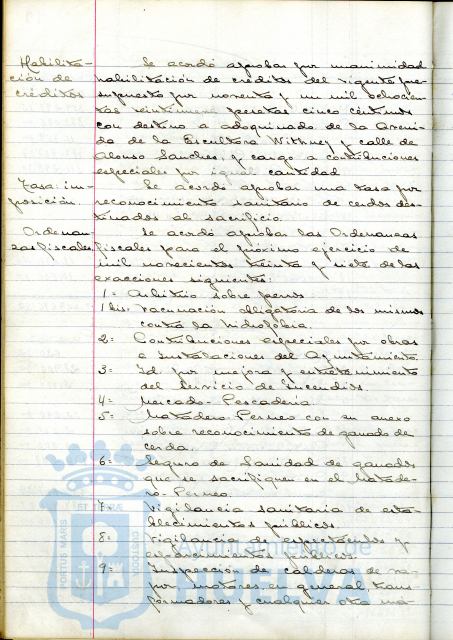 Habilita-
ción de
créditos
Se acordó aprobar por unanimidad
habilitación de créditos del vigente pre-
supuesto por noventa y un mil ochocien-
tas veintinueve pesetas cinco céntimos
con destino a adoquinado de la Aveni-
da de la Escultora Withney y calle de
Alonso Sanches, y cargo a contribuciones
especiales por igual cantidad
Tasa: im-
posición.
Se acordó aprobar una tasa por
reconocimiento sanitario de cerdos des-
tinados al sacrificio.
Ordenan-
zas fiscales.
Se acordó aprobar las Ordenanzas
fiscales para el próximo ejercicio de
mil novecientos treinta y siete de las
exacciones siguientes:
1= Arbitrio sobre perros
1 bis. Vacunación obligatoria de los mismos
contra la hidrofobia.
2= Contribuciones especiales por obras
e instalaciones del Ayuntamiento.
3= Id. por mejora y entretenimiento
del Servicio de Incendios.
4= Mercado- Pescaderia.
5= Matadero- Perneo con su anexo
sobre reconocimiento de ganado de
cerda.
6= Seguro de Sanidad de ganados
que se sacrifiquen en el Matade-
ro- Perneo.
7= Vigilancia sanitaria de esta-
blecimientos públicos.
8= Vigilancia de espectáculos y
establecimientos públicos.
9= Inspección de calderas de va-
por, motores en general, trans-
formadores y cualquier otra má-
PORTUS MARIS ET TERRAE CUSTODIA
Ayuntamiento de
HUELVA